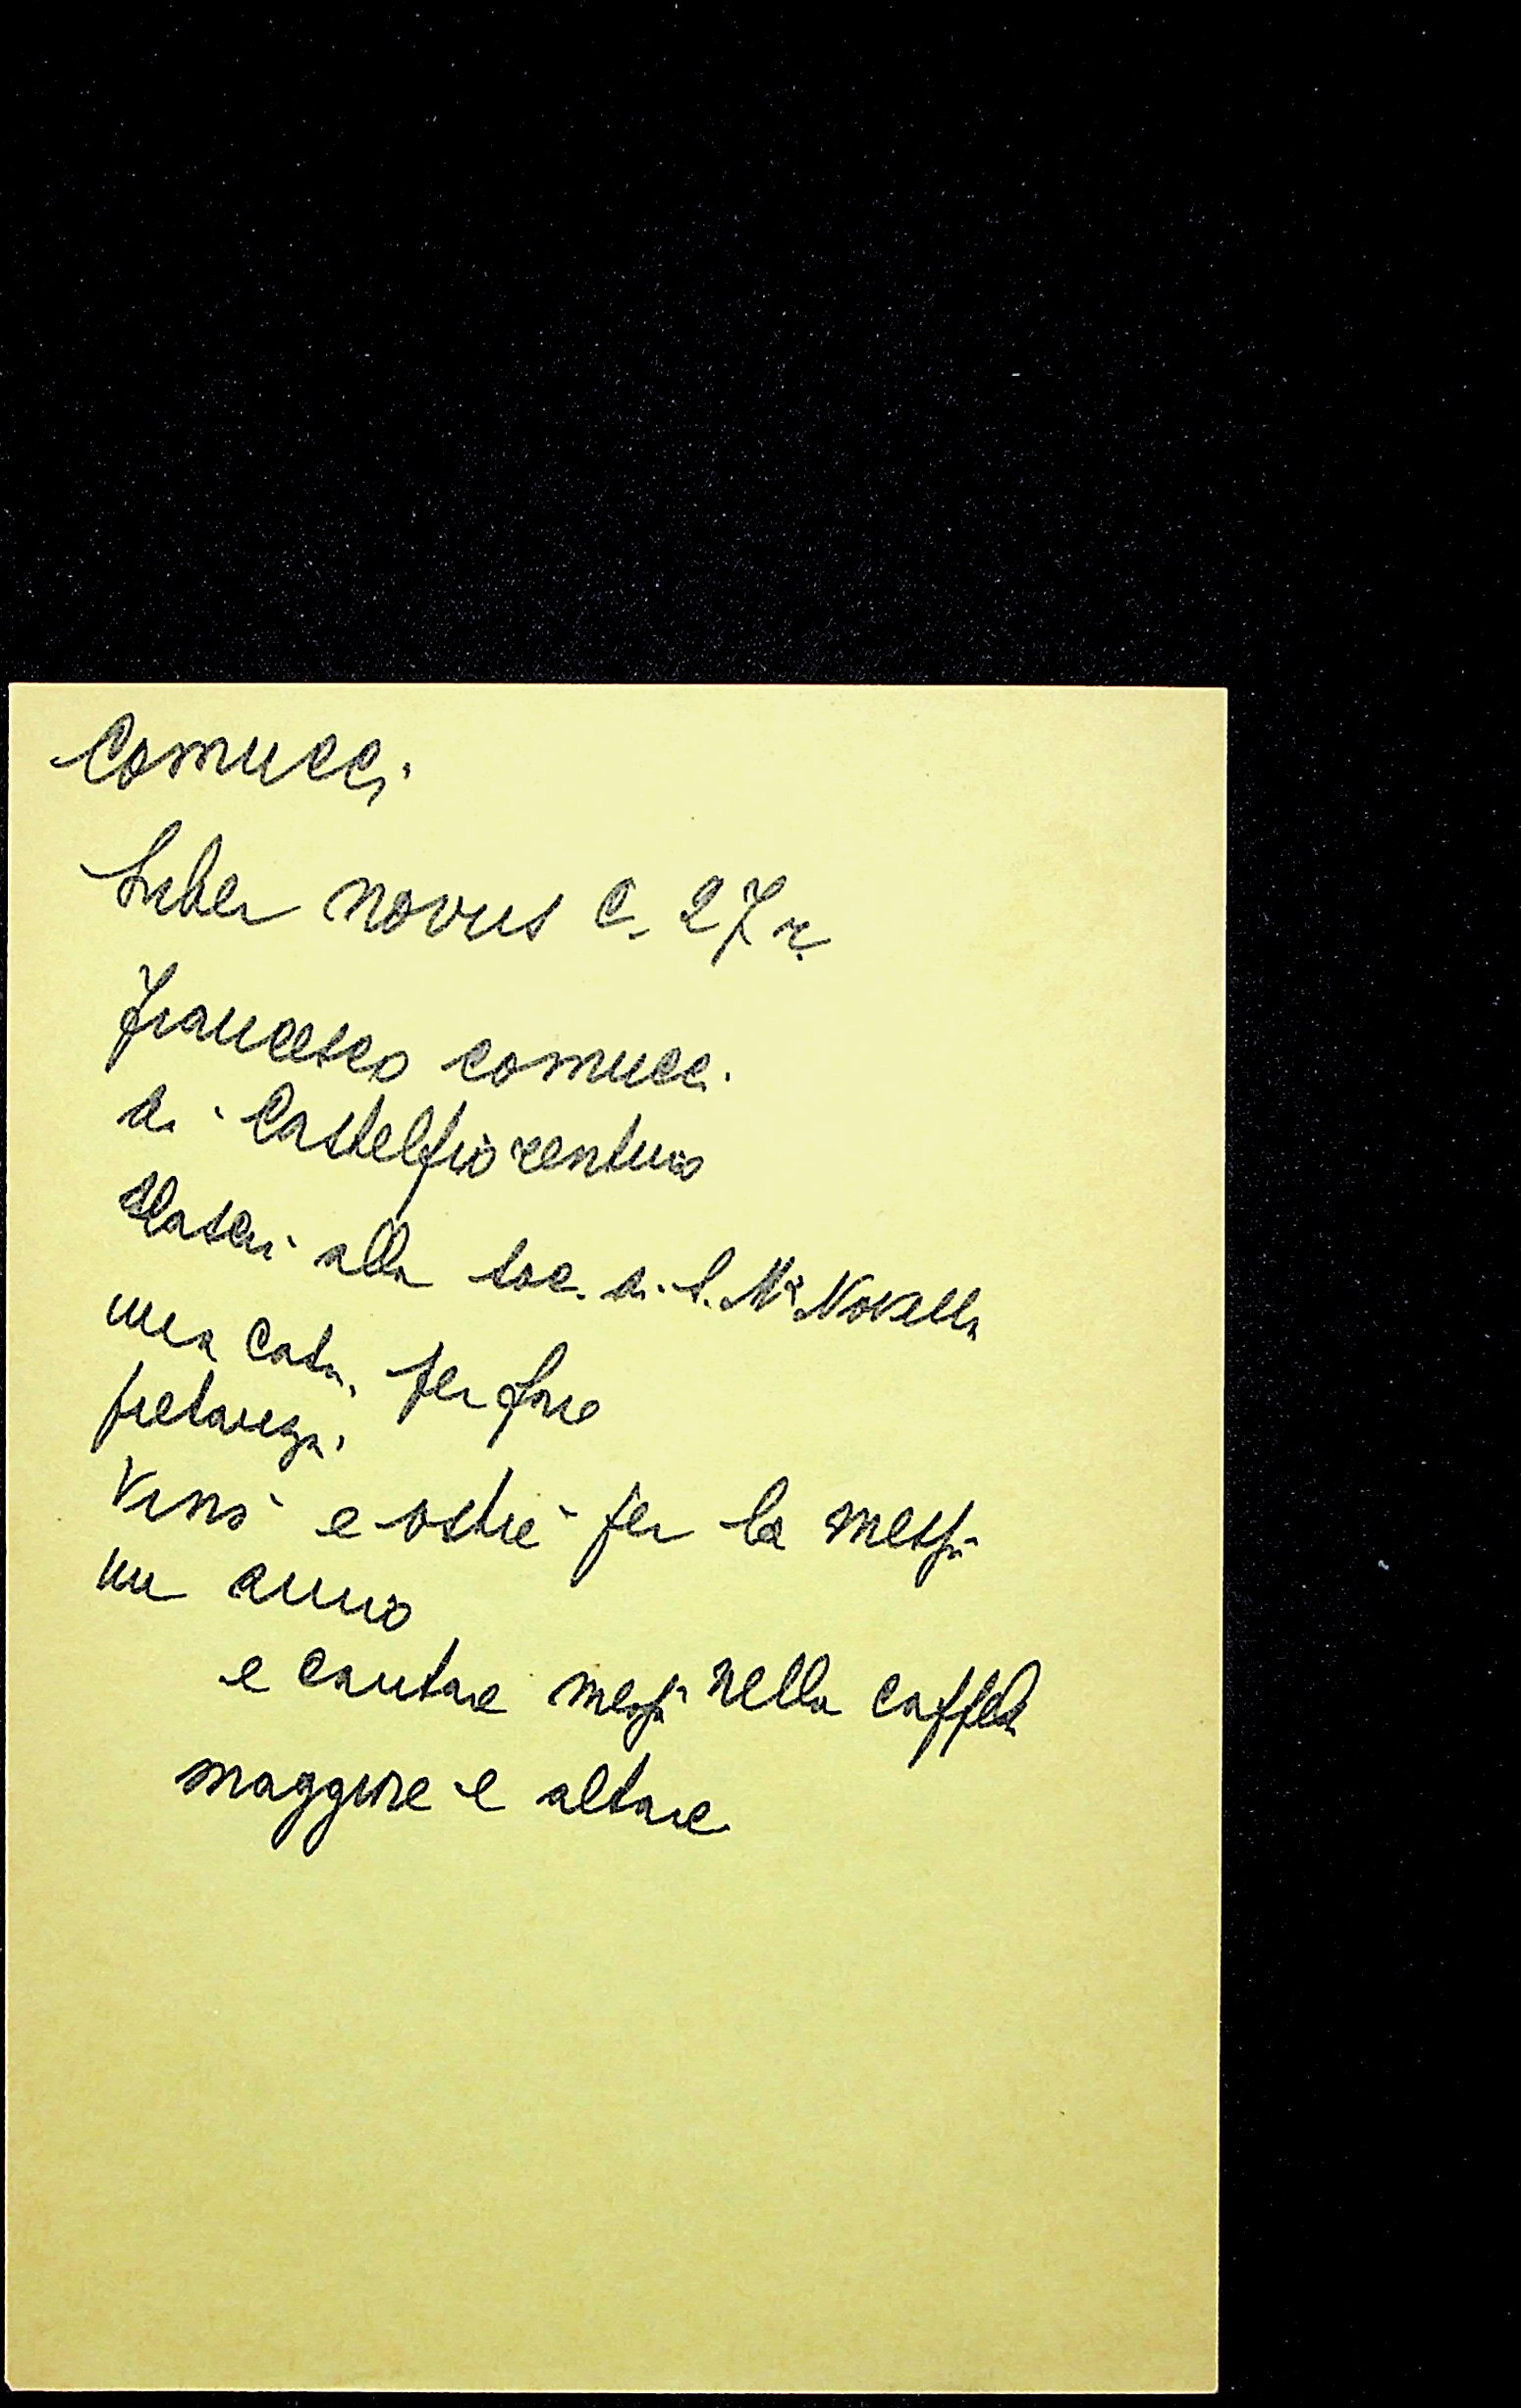 Comucci
Liber novus c. 27 r.
Francesco Comucci
di Castelfiorentino
lasciò alla soc. di S. Mª Novella
una casa, per fare
pietanza,
vino e ostie per la messa
un anno
e cantare messa nella cappella
maggiore e altare